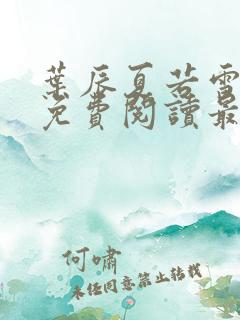 葉辰夏若雪
免費閱讀最
何嘯
未经同意禁止转载